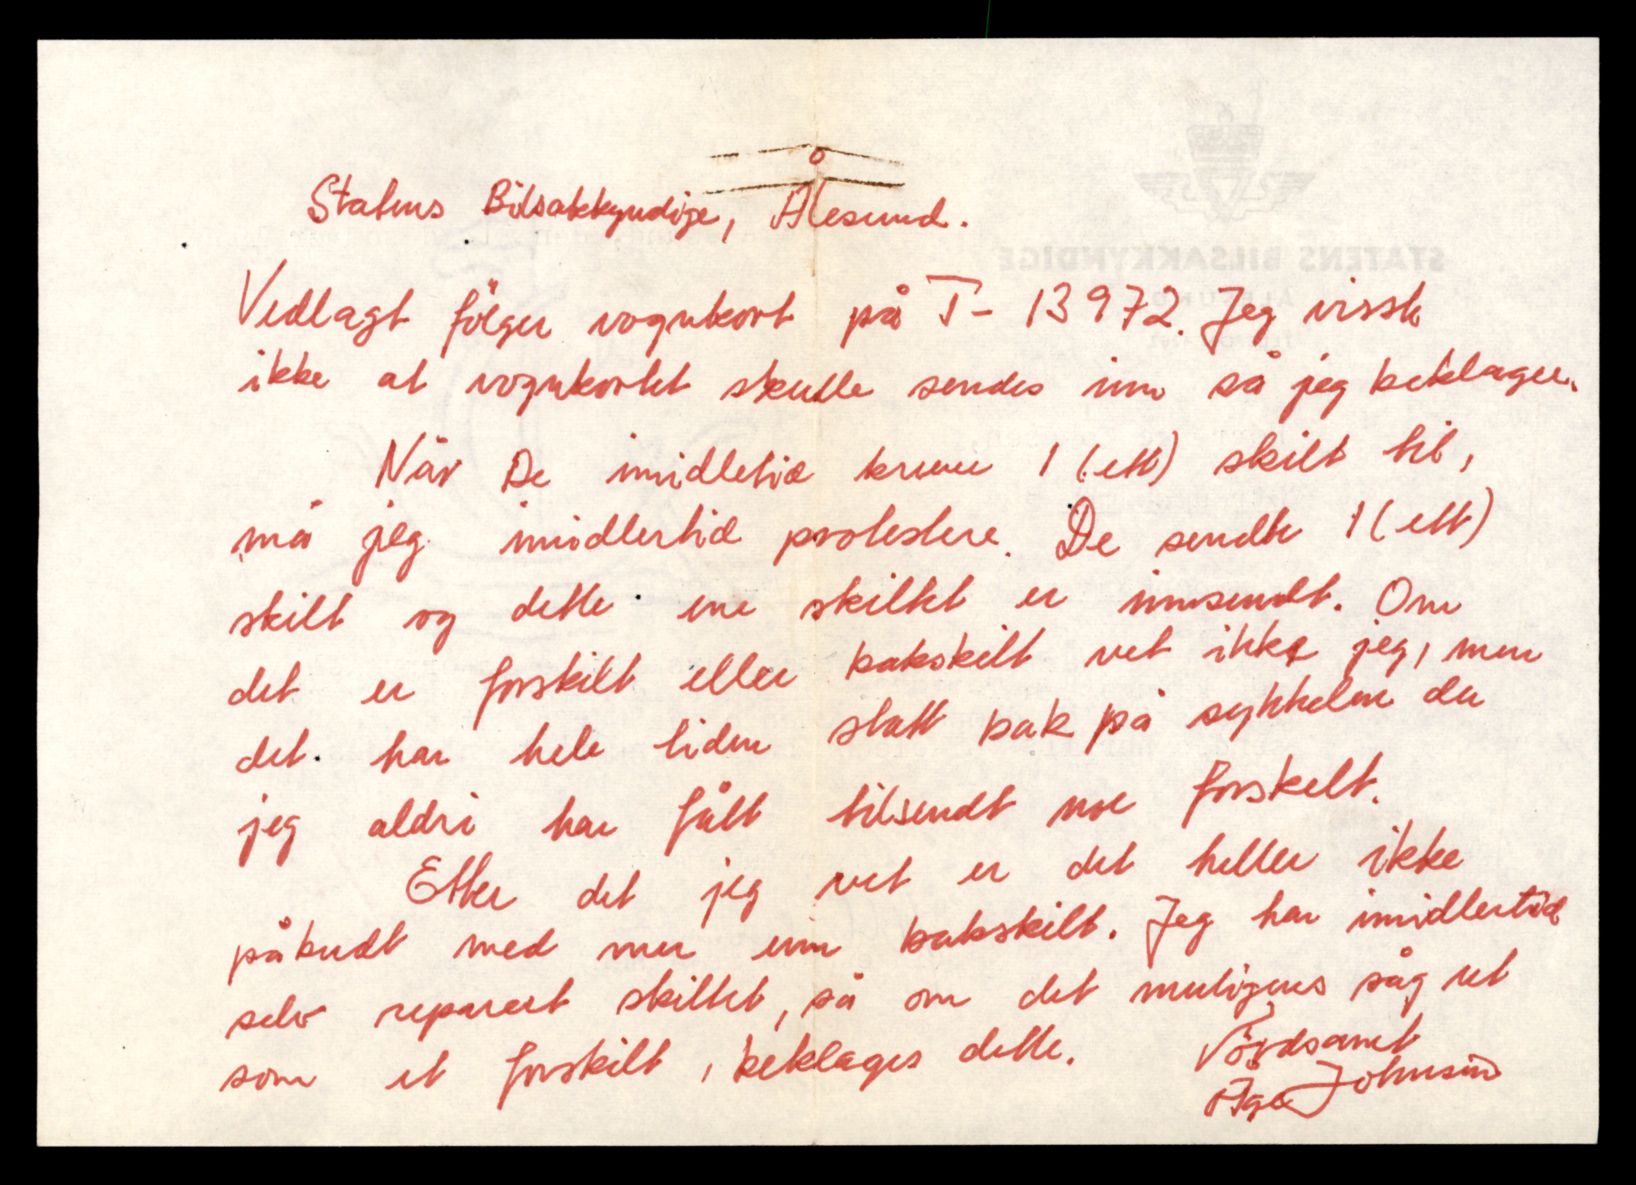 Statens Bilsakkyndige, Ålesund.
STATENS BILSAKKYNDIGE
Vedlagt følger vognkort på T- 13972. Jeg visste
ikke at vognkortet skulle sendes inn så jeg beklager.
Når De imidletid krever 1 (ett) skilt til,
må jeg imidlertid protestere. De sendte 1 (ett)
skilt og dette ene skiltet er innsendt. Om
det er forskilt eller bakskilt vet ikke jeg, men
det har hele tiden stått bak på sykkelen da
jeg aldri har fått tilsendt noe forskelt.
Etter det jeg vet er det heller ikke
påbudt med mer enn bakskilt. Jeg har imidlertid
selv reparert skiltet, så om det muligens såg ut
som et forskilt, beklages dette.
Vördsamt
Åge Johnsen